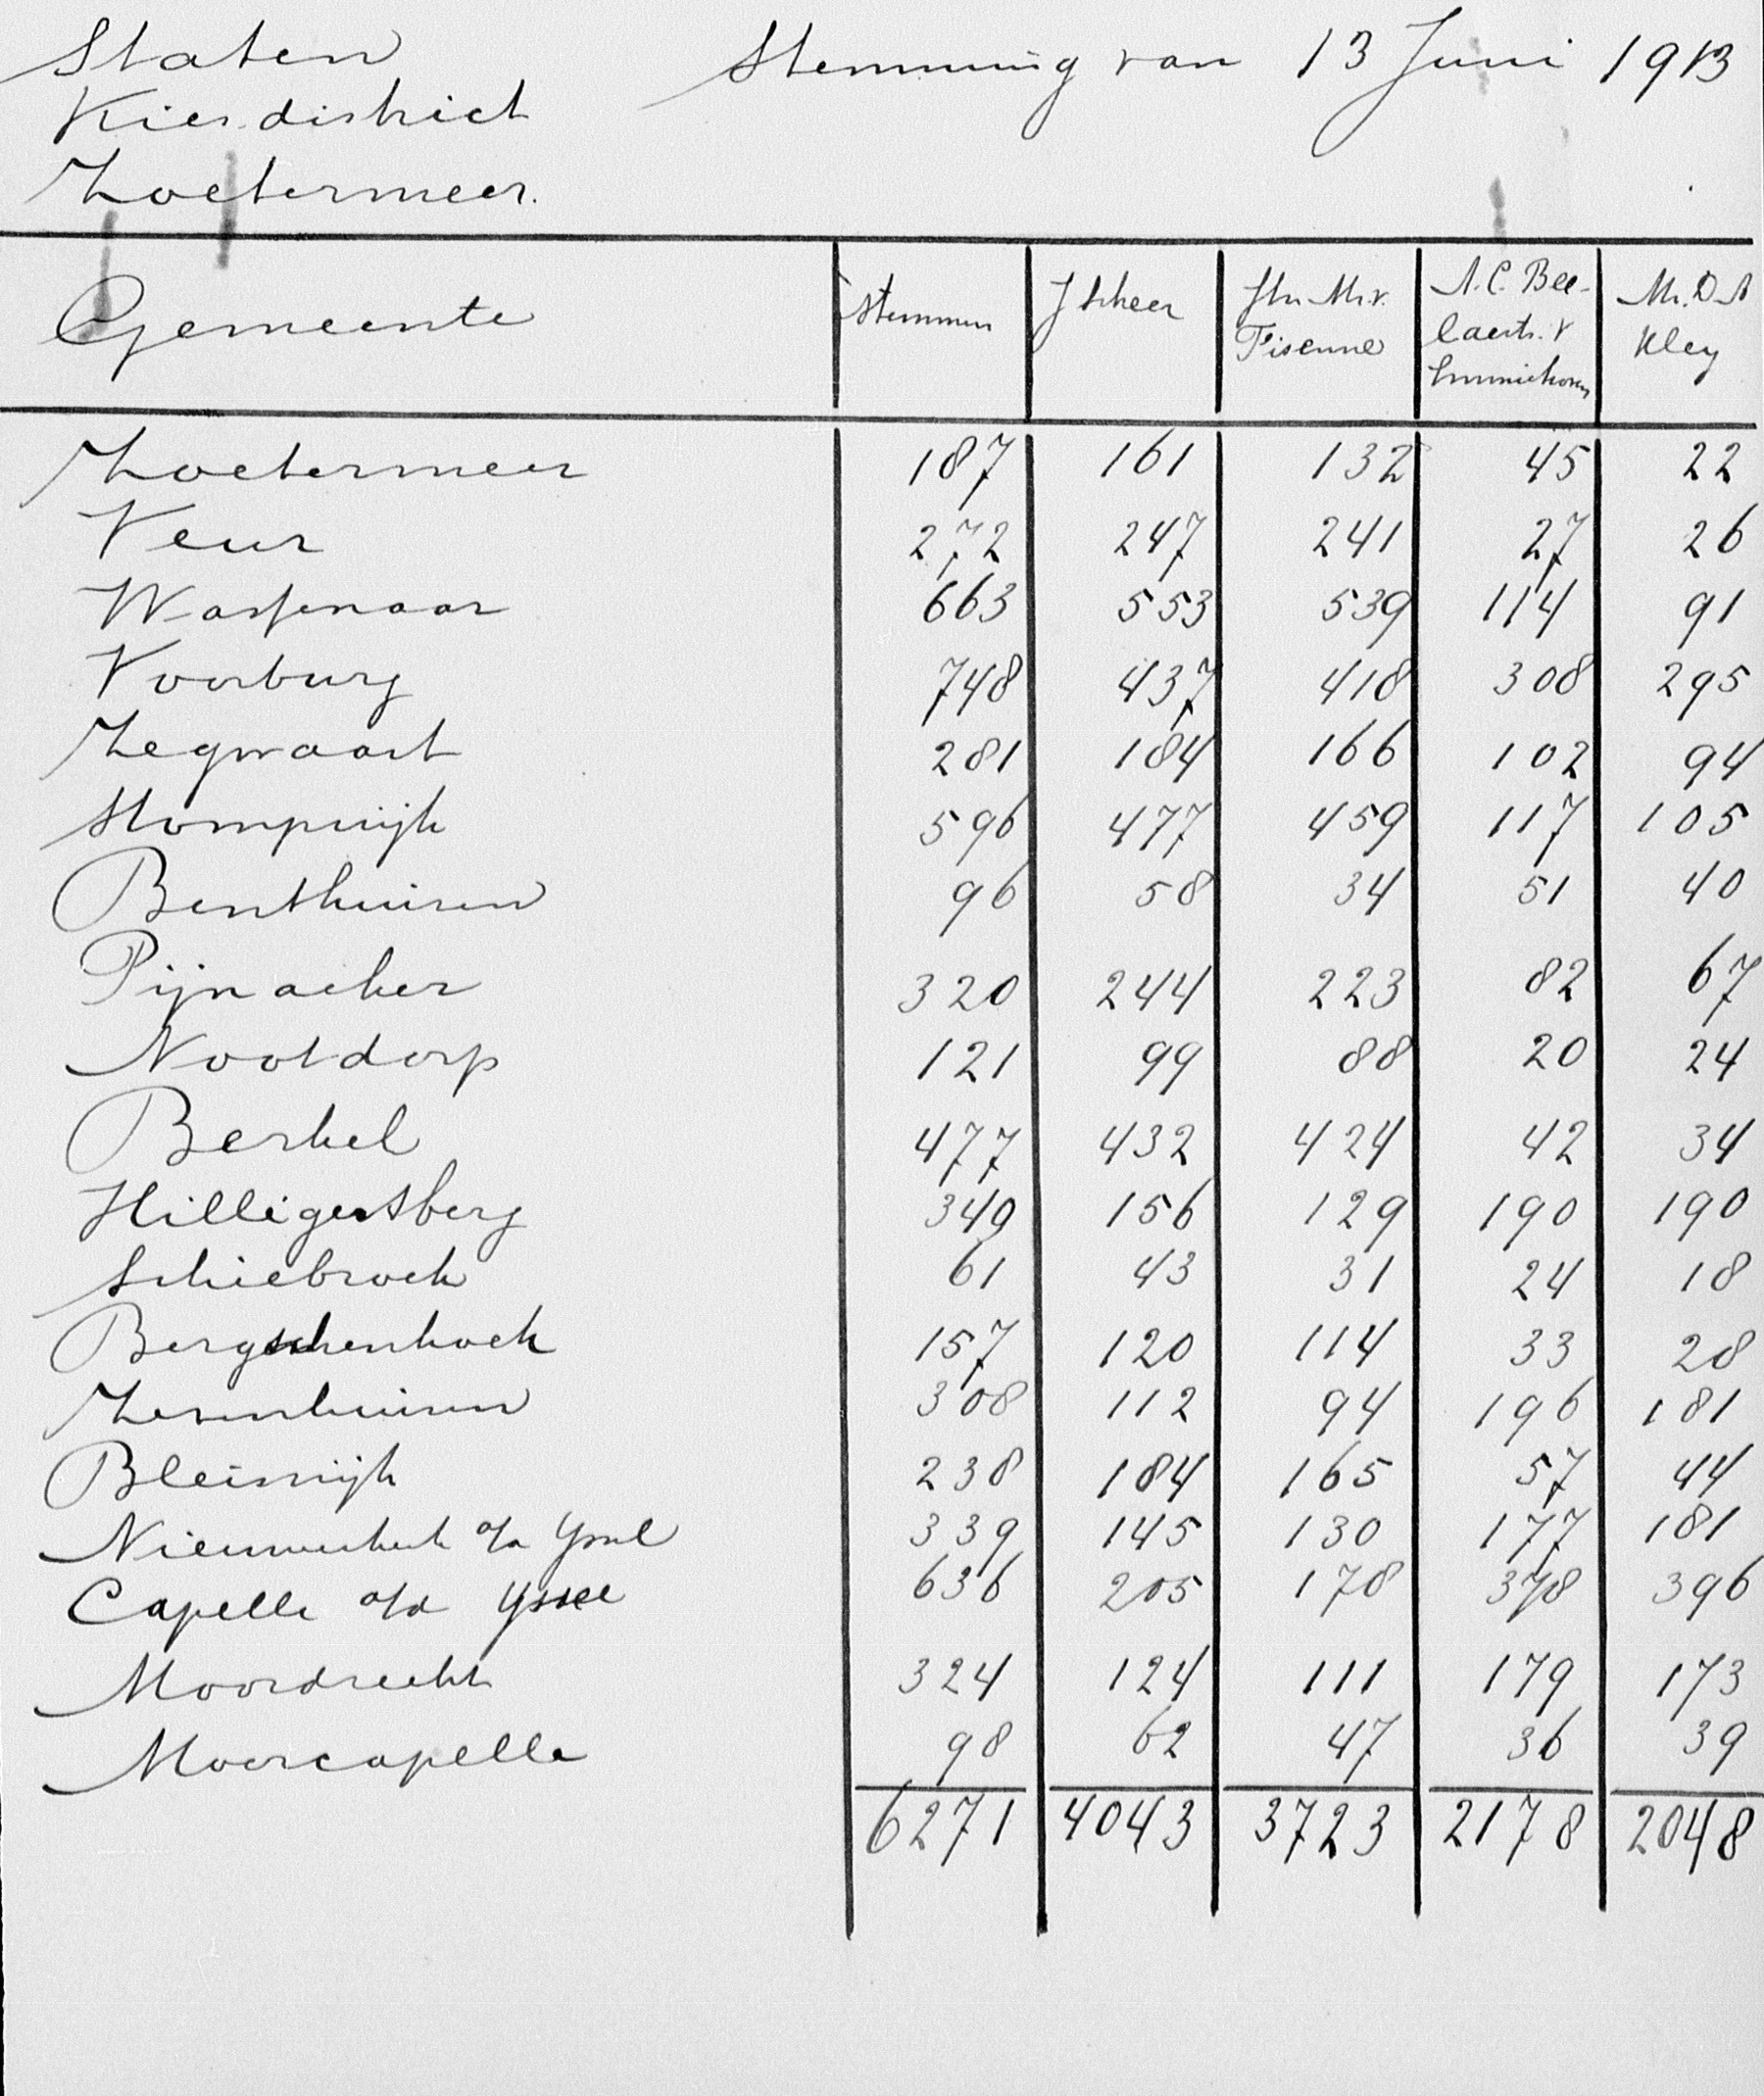 Staten Stemming van 13 Juni 1913
Kiesdistrict
Zoetermeer.
Gemeente Stemmen J Scheer Jhr. Mr. v. Fisenne A. C. Bee- laerts. v Emmichoven Mr. D A Kley
Zoetermeer 187 161 132 45 22
Veur 272 247 241 27 26
Wassenaar 663 553 539 114 91
Voorburg 748 437 418 308 295
Zegwaart 281 184 166 102 94
Stompwijk 596 477 459 117 105
Benthuisen 96 58 34 51 40
Pijnacker 320 244 223 82 67
Nootdorp 121 99 88 20 24
Berkel 477 432 424 42 34
Hilligersberg 349 156 129 190 190
Schiebroek 61 43 31 24 18
Bergschenhoek 157 120 114 33 28
Zevenhuisen 308 112 94 196 181
Bleiswijk 238 184 165 57 44
Nieuwerkerk a/d Yssel 339 145 130 177 181
Capelle a/d Yssel 636 205 178 378 396
Moordrecht 324 124 111 179 173
Moercapelle 98 62 47 36 39
6271 4043 3723 2178 2048